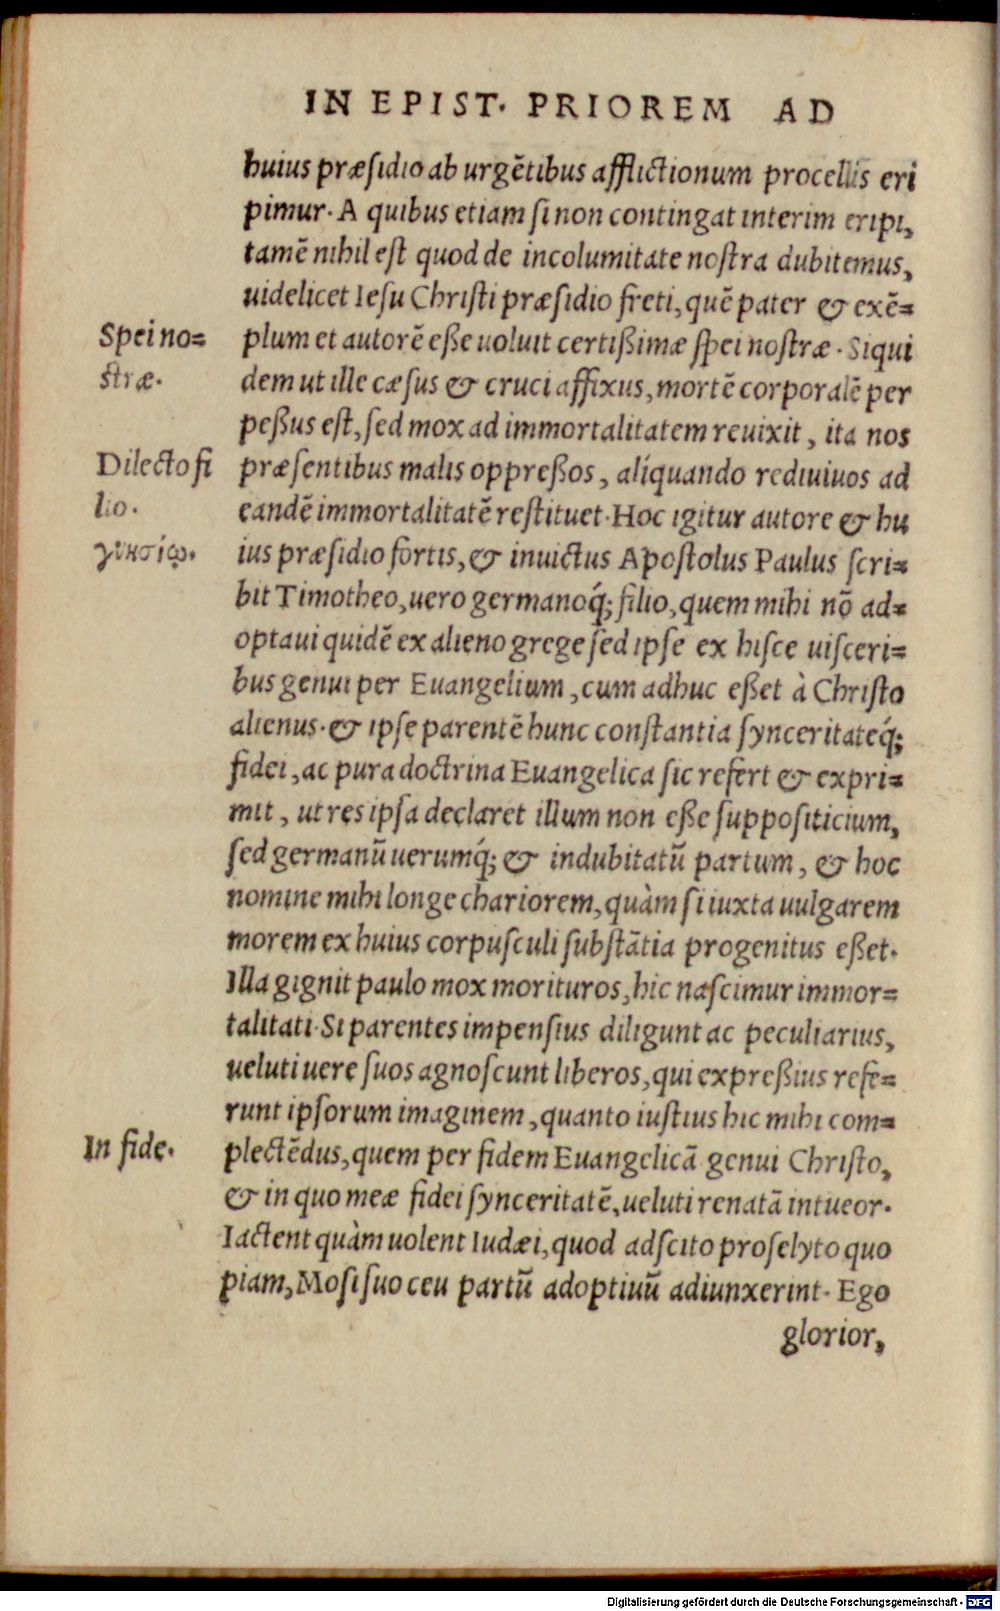 IN EPIST. PRIOREM AD
huius præsidio ab urgētibus afflictionum procellis eri
pimur. A quibus etiam si non contingat interim eripi,
tamē nihil est quod de incolumitate nostra dubitemus,
uidelicet Iesu Christi præsidio freti, quē pater & exē=
Spei no=
stræ.
plum et autorē eße uoluit certißimæ spei nostræ. Siqui
dem ut ille cæsus & cruci affixus, mortē corporalē per
peßus est, sed mox ad immortalitatem reuixit, ita nos
Dilecto fi
lio.
γνησίῳ.
præsentibus malis oppreßos, aliquando rediuiuos ad
eandē immortalitatē restituet. Hoc igitur autore & hu
ius præsidio fortis, & inuictus Apostolus Paulus scri=
bit Timotheo, uero germanoq́; filio, quem mihi nō ad=
optaui quidē ex alieno grege sed ipse ex hisce uisceri=
bus genui per Euangelium, cum adhuc eßet à Christo
alienus. & ipse parentē hunc constantia synceritateq́;
fidei, ac pura doctrina Euangelica sic refert & expri=
mit, ut res ipsa declaret illum non eße suppositicium,
sed germanū uerumq́; & indubitatū partum, & hoc
nomine mihi longe chariorem, quàm si iuxta uulgarem
morem ex huius corpusculi substātia progenitus eßet.
Illa gignit paulo mox morituros, hic nascimur immor=
talitati. Si parentes impensius diligunt ac peculiarius,
ueluti uere suos agnoscunt liberos, qui expreßius refe=
runt ipsorum imaginem, quanto iustius hic mihi com=
In fide.
plectēdus, quem per fidem Euangelicā genui Christo,
& in quo meæ fidei synceritatē, ueluti renatā intueor.
Iactent quàm uolent Iudæi, quod adscito proselyto quo
piam, Mosi suo ceu partū adoptiuū adiunxerint. Ego
glorior,
Digitalisierung gefördert durch die Deutsche Forschungsgemeinschaft - DFG